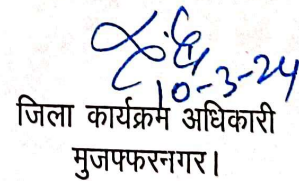 10-3-24
जिला कार्यक्रम अधिकारी
मुजफ्फरनगर।